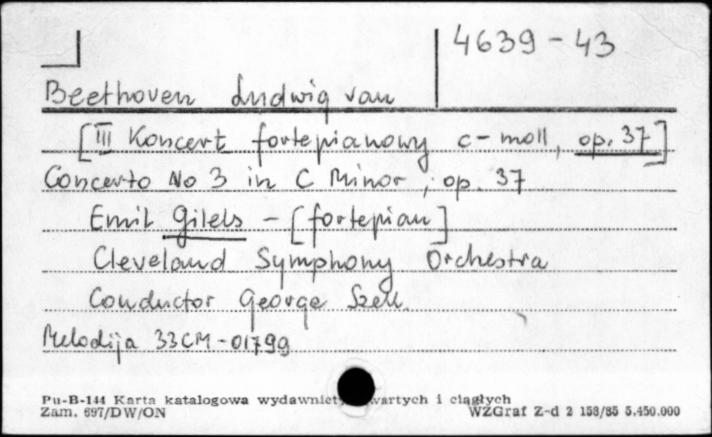 4639-43
Beethoven Ludwig van
[III Koncert fortepianowy c-moll, op. 37]
Concerto No 3 in C Minor, op. 37
Emil Gilels - [fortepian]
Cleveland Symphony Orchestra
Conductor George Szell.
Melodija 33CM-01799
Pu-B-144 Karta katalogowa wydawnict wartych i ciągłych
Zam. 697/DW/ON WZGraf Z-d 2 158/85 5.450.000